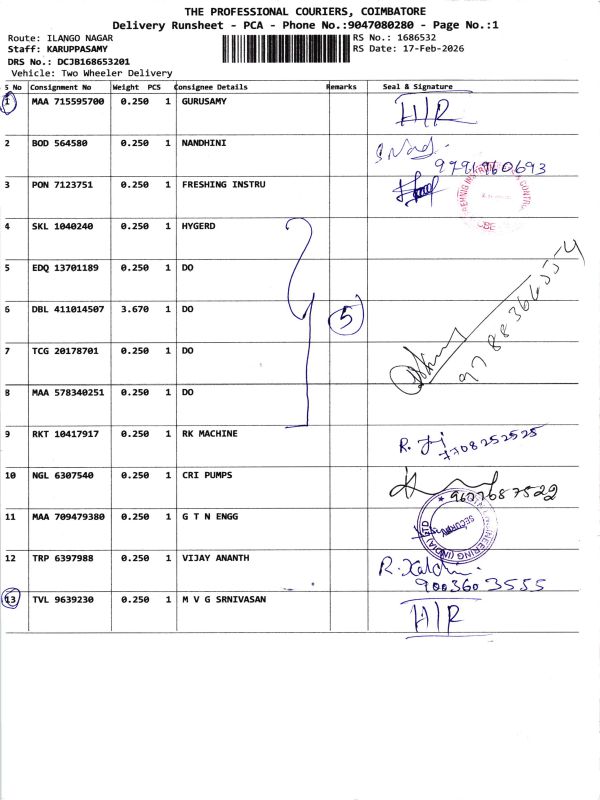 THE PROFESSIONAL COURIERS, COIMBATORE
Delivery Runsheet - PCA - Phone No.:9047080280 - Page No.:1
Route: ILANGO NAGAR
RS No.: 1686532
Staff: KARUPPASAMY
RS Date: 17-Feb-2026
DRS No.: DCJB168653201
Vehicle: Two Wheeler Delivery
S No Consignment No Weight PCS Consignee Details Remarks Seal & Signature
1 MAA 715595700 0.250 1 GURUSAMY H/R
2 BOD 564580 0.250 1 NANDHINI
9791960693
3 PON 7123751 0.250 1 FRESHING INSTRU
4 SKL 1040240 0.250 1 HYGERD
5 EDQ 13701189 0.250 1 DO
6 DBL 411014507 3.670 1 DO 5
9788366554
7 TCG 20178701 0.250 1 DO
8 MAA 578340251 0.250 1 DO
9 RKT 10417917 0.250 1 RK MACHINE
7708252525
10 NGL 6307540 0.250 1 CRI PUMPS
9677687522
11 MAA 709479380 0.250 1 G T N ENGG
SECURITY
12 TRP 6397988 0.250 1 VIJAY ANANTH
9003603555
13 TVL 9639230 0.250 1 M V G SRNIVASAN H/R